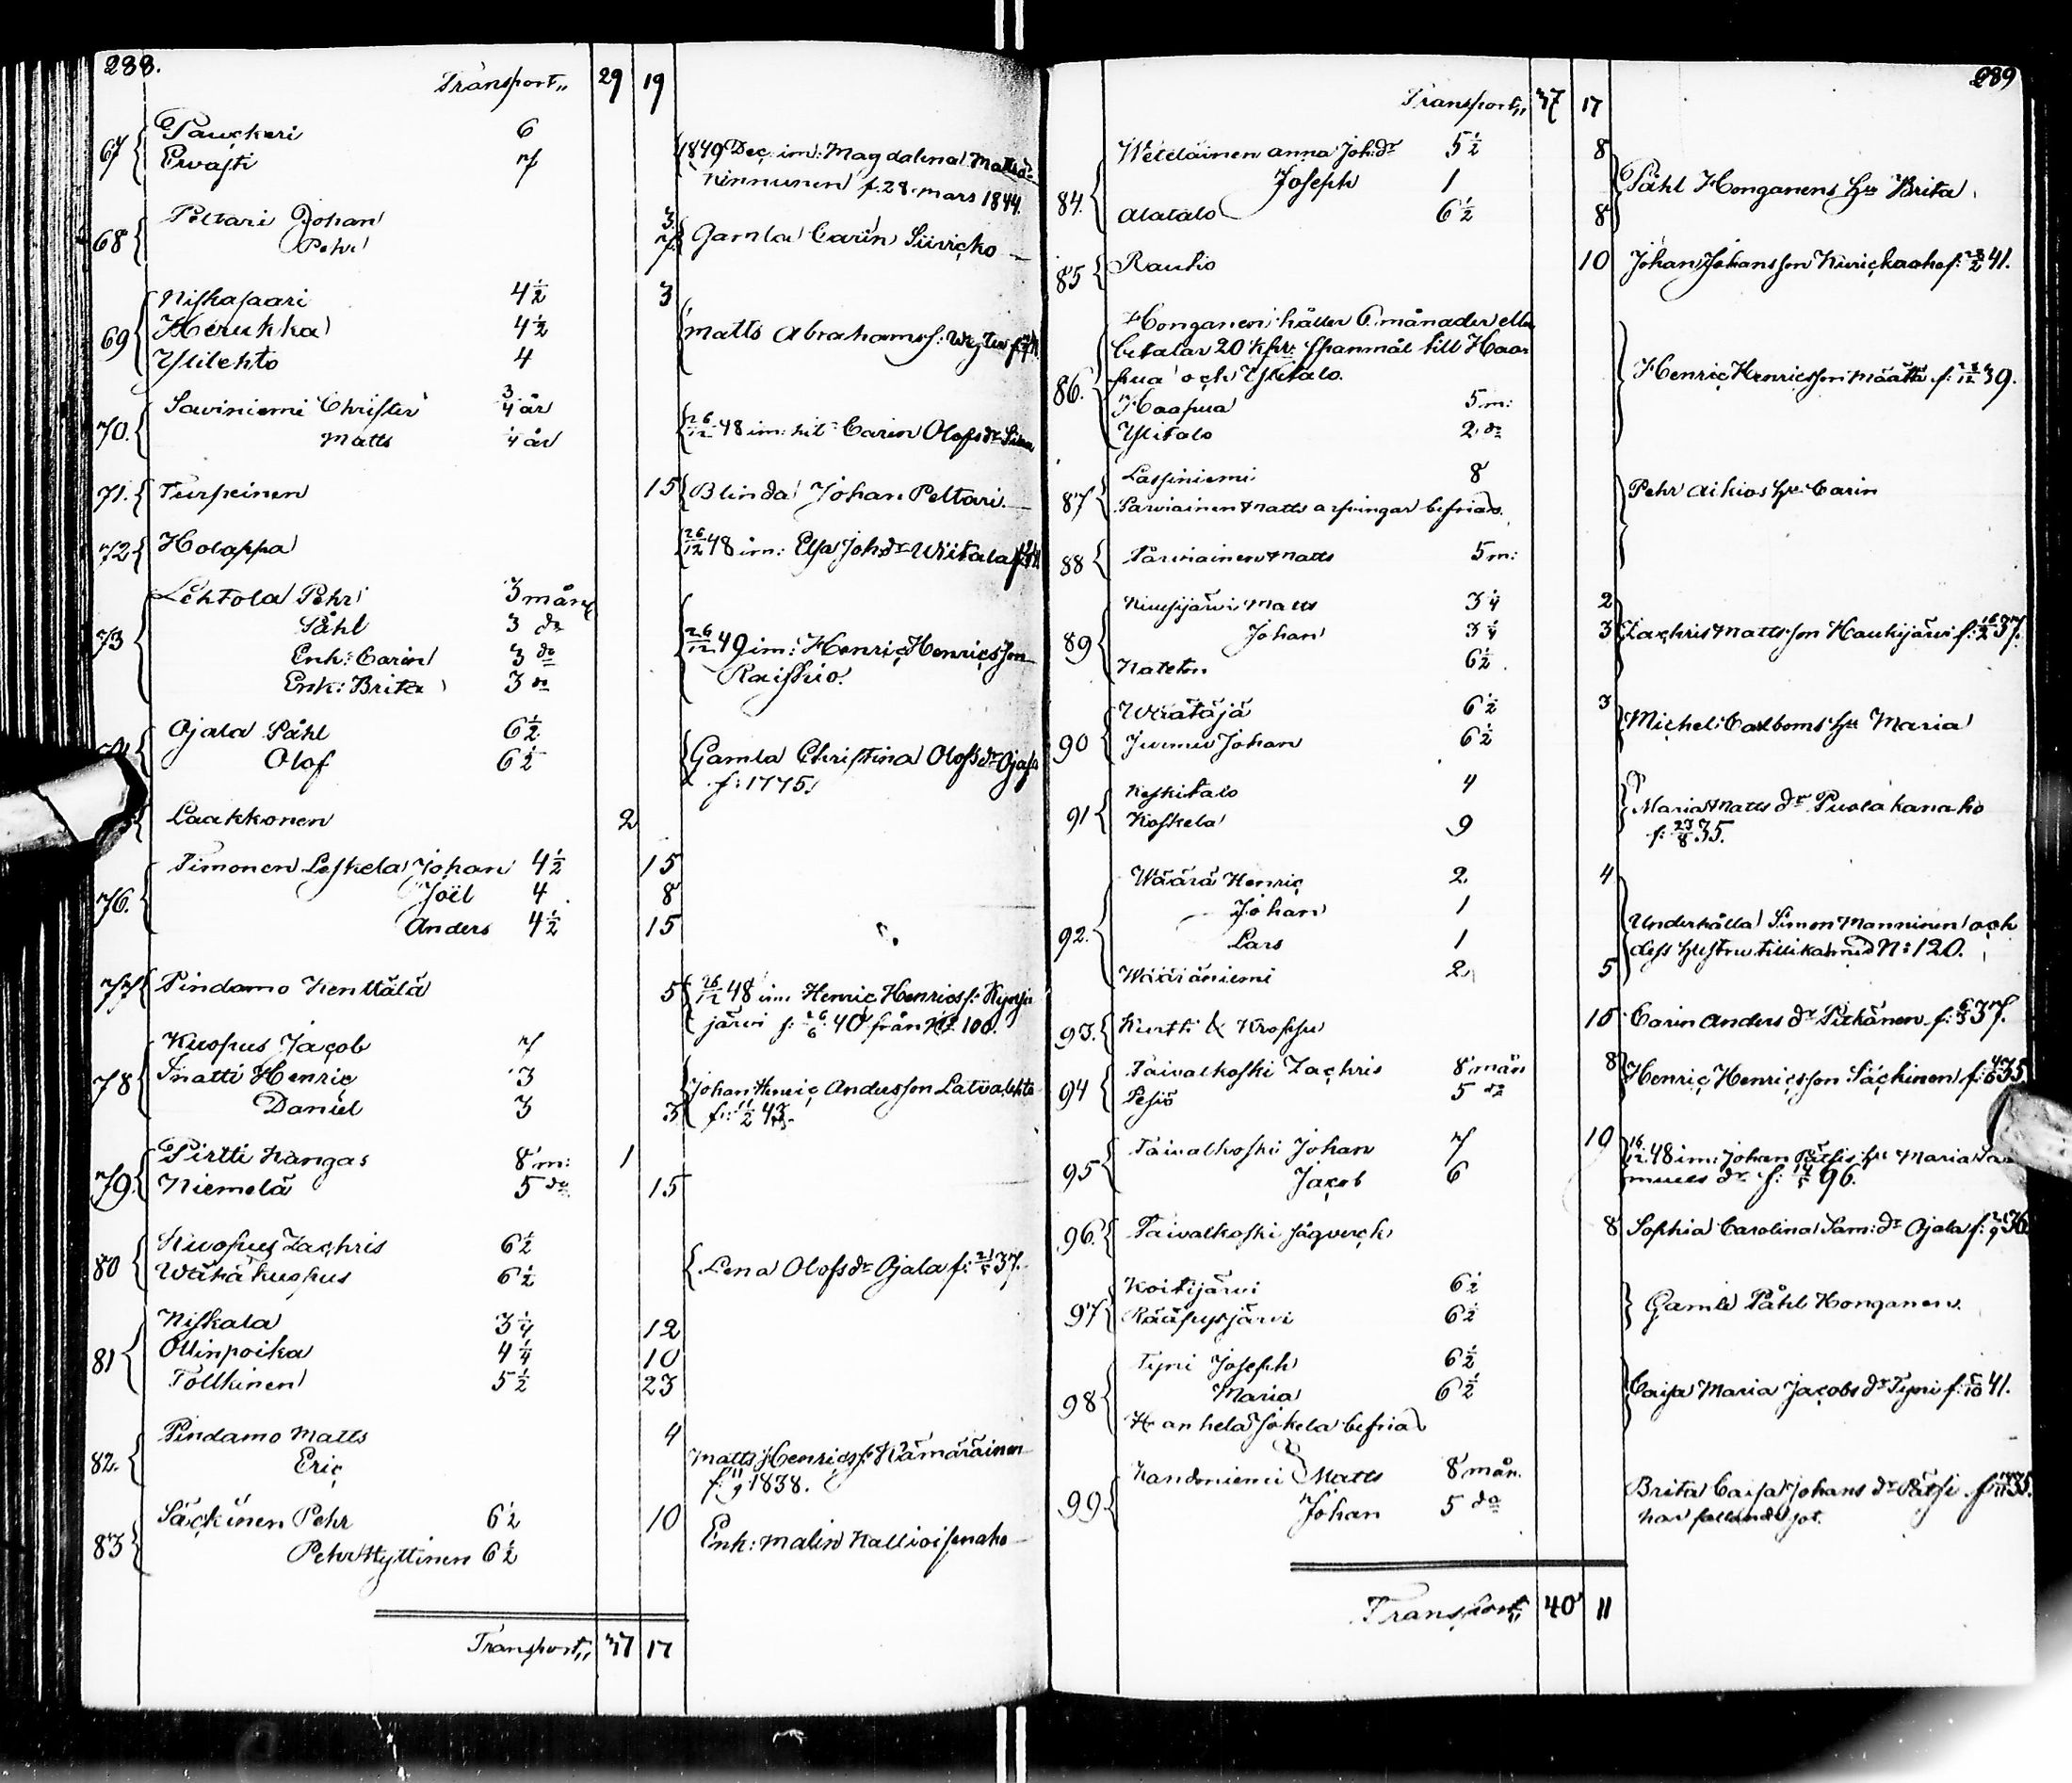 288.
Transport,, 29 19
67 Pauckeri 6
Ervasti 7
1849 Dec: im: Magdalena Mattsdr
Kinnunen f. 28. mars 1844.
68 Peltari Johan 3
Pehr 7
Gamla Carin Siivicko
69 Niskasaari 4½ 3
Herukka 4½
Ylilehto 4
Matts Abrahamss:
70. Saviniemi Christer ¾ år
Matts ¼ år
26/12 48 im: hit Carin Olofsdr
71. Turpeinen 15
Blinda Johan Peltari.
72 Holappa
26/12 48 im: Elsa Johdr Wiitala
73 Lehtola Pehr 3 mån
Påhl 3 do
Enk: Carin 3 do
Enk: Brita 3 do
26/12 49 im: Henric Henricsson
Raiskio.
Ojala Påhl 6½
Olof 6½
Gamla Christina Olofsdr Ojala
f: 1775.
Laakkonen 2
76. Timonen Leskela Johan 4½ 15
Joël 4 8
Anders 4½ 15
77 Pindamo Kenttälä 5
26/12 48 im: Henric Henricss:
järvi f: 26/6 40 från No 100.
78 Kuopus Jacob 7
Inatti Henric 3
Daniel 3 3
Johan Henric Andersson Latvalehto
f: 11/2 43.
79. Pirtti kangas 8 m: 1
Niemelä 5 do 15
80 Kuopus Zachris 6½
Wähäkuopus 6½
Lena Olofsdr Ojala f: 21/5 37.
81 Niskala 3¼ 12
Ollinpoika 4¼ 10
Tollkinen 5½ 23
82. Pindamo Matts 4
Eric
Matts Henricss: Kämäräinen
f: 11/9 1838.
83 Säckinen Pehr 6½ 10
Pehr Hyttinen 6½
Enk: Malin Kallioisenaho
Transport,, 37 17
289
Transport,, 37 17
84. Weteläinen Anna Johdr 5½ 8
Joseph 1
Alatalo 6½ 8
Påhl Honganens hu Brita
85 Rautio 10
Johan Johansson Kurickaaho f: 41.
86. Honganen håller 6 månader eller
betalar 20 kpr: spanmål till Haa-
pua och Ylitalo.
Haapua 5 m:
Ylitalo 2 do
Henric Henricsson Määttä f: 39.
87 Lassiniemi 8
Parviainen Matts arfvingar befriad.
Pehr Aikios hu Carin
88 Parviainen Matts 5 m:
89 Kuusijärvi Matts 3¼ 2
Johan 3¼ 3
Nateton 6½
Zachris Mattsson Haukijärvi f: 16/2 37.
90 Wäätäjä 6½ 3
Jurmu Johan 6½
Michel Carlboms hu Maria
91 Keskitalo 4
Koskela 9
Maria Matts dr Puolakanaho
f: 23/8 35.
92. Wäärä Henric 2 4
Johan 1
Lars 1
Wääräniemi 2 5
Underhålla Simon Manninen och
dess hustru tillika med N: 120.
93. Kurtti & Kroppu 15
Carin Anders dr Pitkänen f: 37.
94 Taivalkoski Zachris 8 mån 8
Pesiö 5 do
Henric Henricsson Säckinen f: 35.
95 Taivalkoski Johan 7 10
Jacob 6
16/12 48 im: Johan Pätsis hu Maria Sa-
muels dr f: 96.
96. Taivalkoski sågverck 8
Sophia Carolina Sam: dr Ojala f: 36
97 Koitijärvi 6½
Rääpysjärvi 6½
Gamle Påhl Honganen.
98 Tyni Joseph 6½
Maria 6½
Han hela Jokela befriad
Caisa Maria Jacobs dr Tyni f: 41.
99 Kandoniemi Matts 8 mån.
Johan 5 do
Brita Caisa Johans dr Pätsi f: 35.
har fallande sot.
Transport,, 40 11